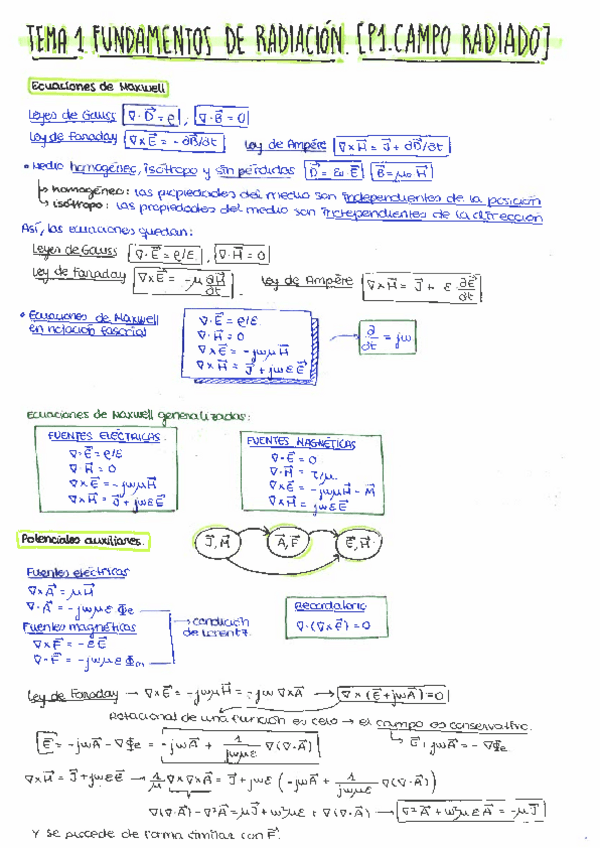 TEMA 1 FUNDAMENTOS DE RADIACIÓN. [P1.CAMPO RADIADO]
Ecuaciones de Maxwell
Leyes de Gauss ∇·D⃗ = ρ , ∇·B⃗ = 0
Ley de Faraday ∇×E⃗ = -∂B⃗/∂t Ley de Ampère ∇×H⃗ = J⃗ + ∂D⃗/∂t
• Medio homogéneo, isótropo y sin pérdidas D⃗ = ε₀·E⃗ B⃗ = μ₀·H⃗
↳ homogéneo: las propiedades del medio son independientes de la posición
↳ isótropo: las propiedades del medio son independientes de la dirección
Así, las ecuaciones quedan:
Leyes de Gauss ∇·E⃗ = ρ/ε , ∇·H⃗ = 0
Ley de Faraday ∇×E⃗ = -μ ∂H⃗/∂t . Ley de Ampère ∇×H⃗ = J⃗ + ε ∂E⃗/∂t
• Ecuaciones de Maxwell en notación fasorial
∇·E⃗ = ρ/ε
∇·H⃗ = 0
∇×E⃗ = -jωμH⃗
∇×H⃗ = J⃗ + jωεE⃗
→ ∂/∂t = jω
Ecuaciones de Maxwell generalizadas:
FUENTES ELÉCTRICAS.
∇·E⃗ = ρ/ε
∇·H⃗ = 0
∇×E⃗ = -jωμH⃗
∇×H⃗ = J⃗ + jωεE⃗
FUENTES MAGNÉTICAS
∇·E⃗ = 0
∇·H⃗ = τ/μ.
∇×E⃗ = -jωμH⃗ - M⃗
∇×H⃗ = jωεE⃗
Potenciales auxiliares.
J⃗, M⃗ → A⃗, F⃗ → E⃗, H⃗
Fuentes eléctricas
∇×A⃗ = μH⃗
∇·A⃗ = -jωμε Φe
Fuentes magnéticas
∇×F⃗ = -εE⃗
∇·F⃗ = -jωμε Φm
→ condición
de Lorentz.
Recordatorio
∇·(∇×F⃗) = 0
Ley de Faraday → ∇×E⃗ = -jωμH⃗ = -jω ∇×A⃗ → ∇×(E⃗+jωA⃗) = 0
Rotacional de una función es cero → el campo es conservativo.
↳ E⃗ + jωA⃗ = -∇Φe
E⃗ = -jωA⃗ - ∇Φe = -jωA⃗ + 1/jωμε ∇(∇·A⃗)
∇×H⃗ = J⃗ + jωεE⃗ → 1/μ ∇×∇×A⃗ = J⃗ + jωε (-jωA⃗ + 1/jωμε ∇(∇·A⃗))
∇(∇·A⃗) - ∇²A⃗ = μJ⃗ + ω²με A⃗ + ∇(∇·A⃗) → ∇²A⃗ + ω²με A⃗ = -μJ⃗
Y se procede de forma similar con F⃗.